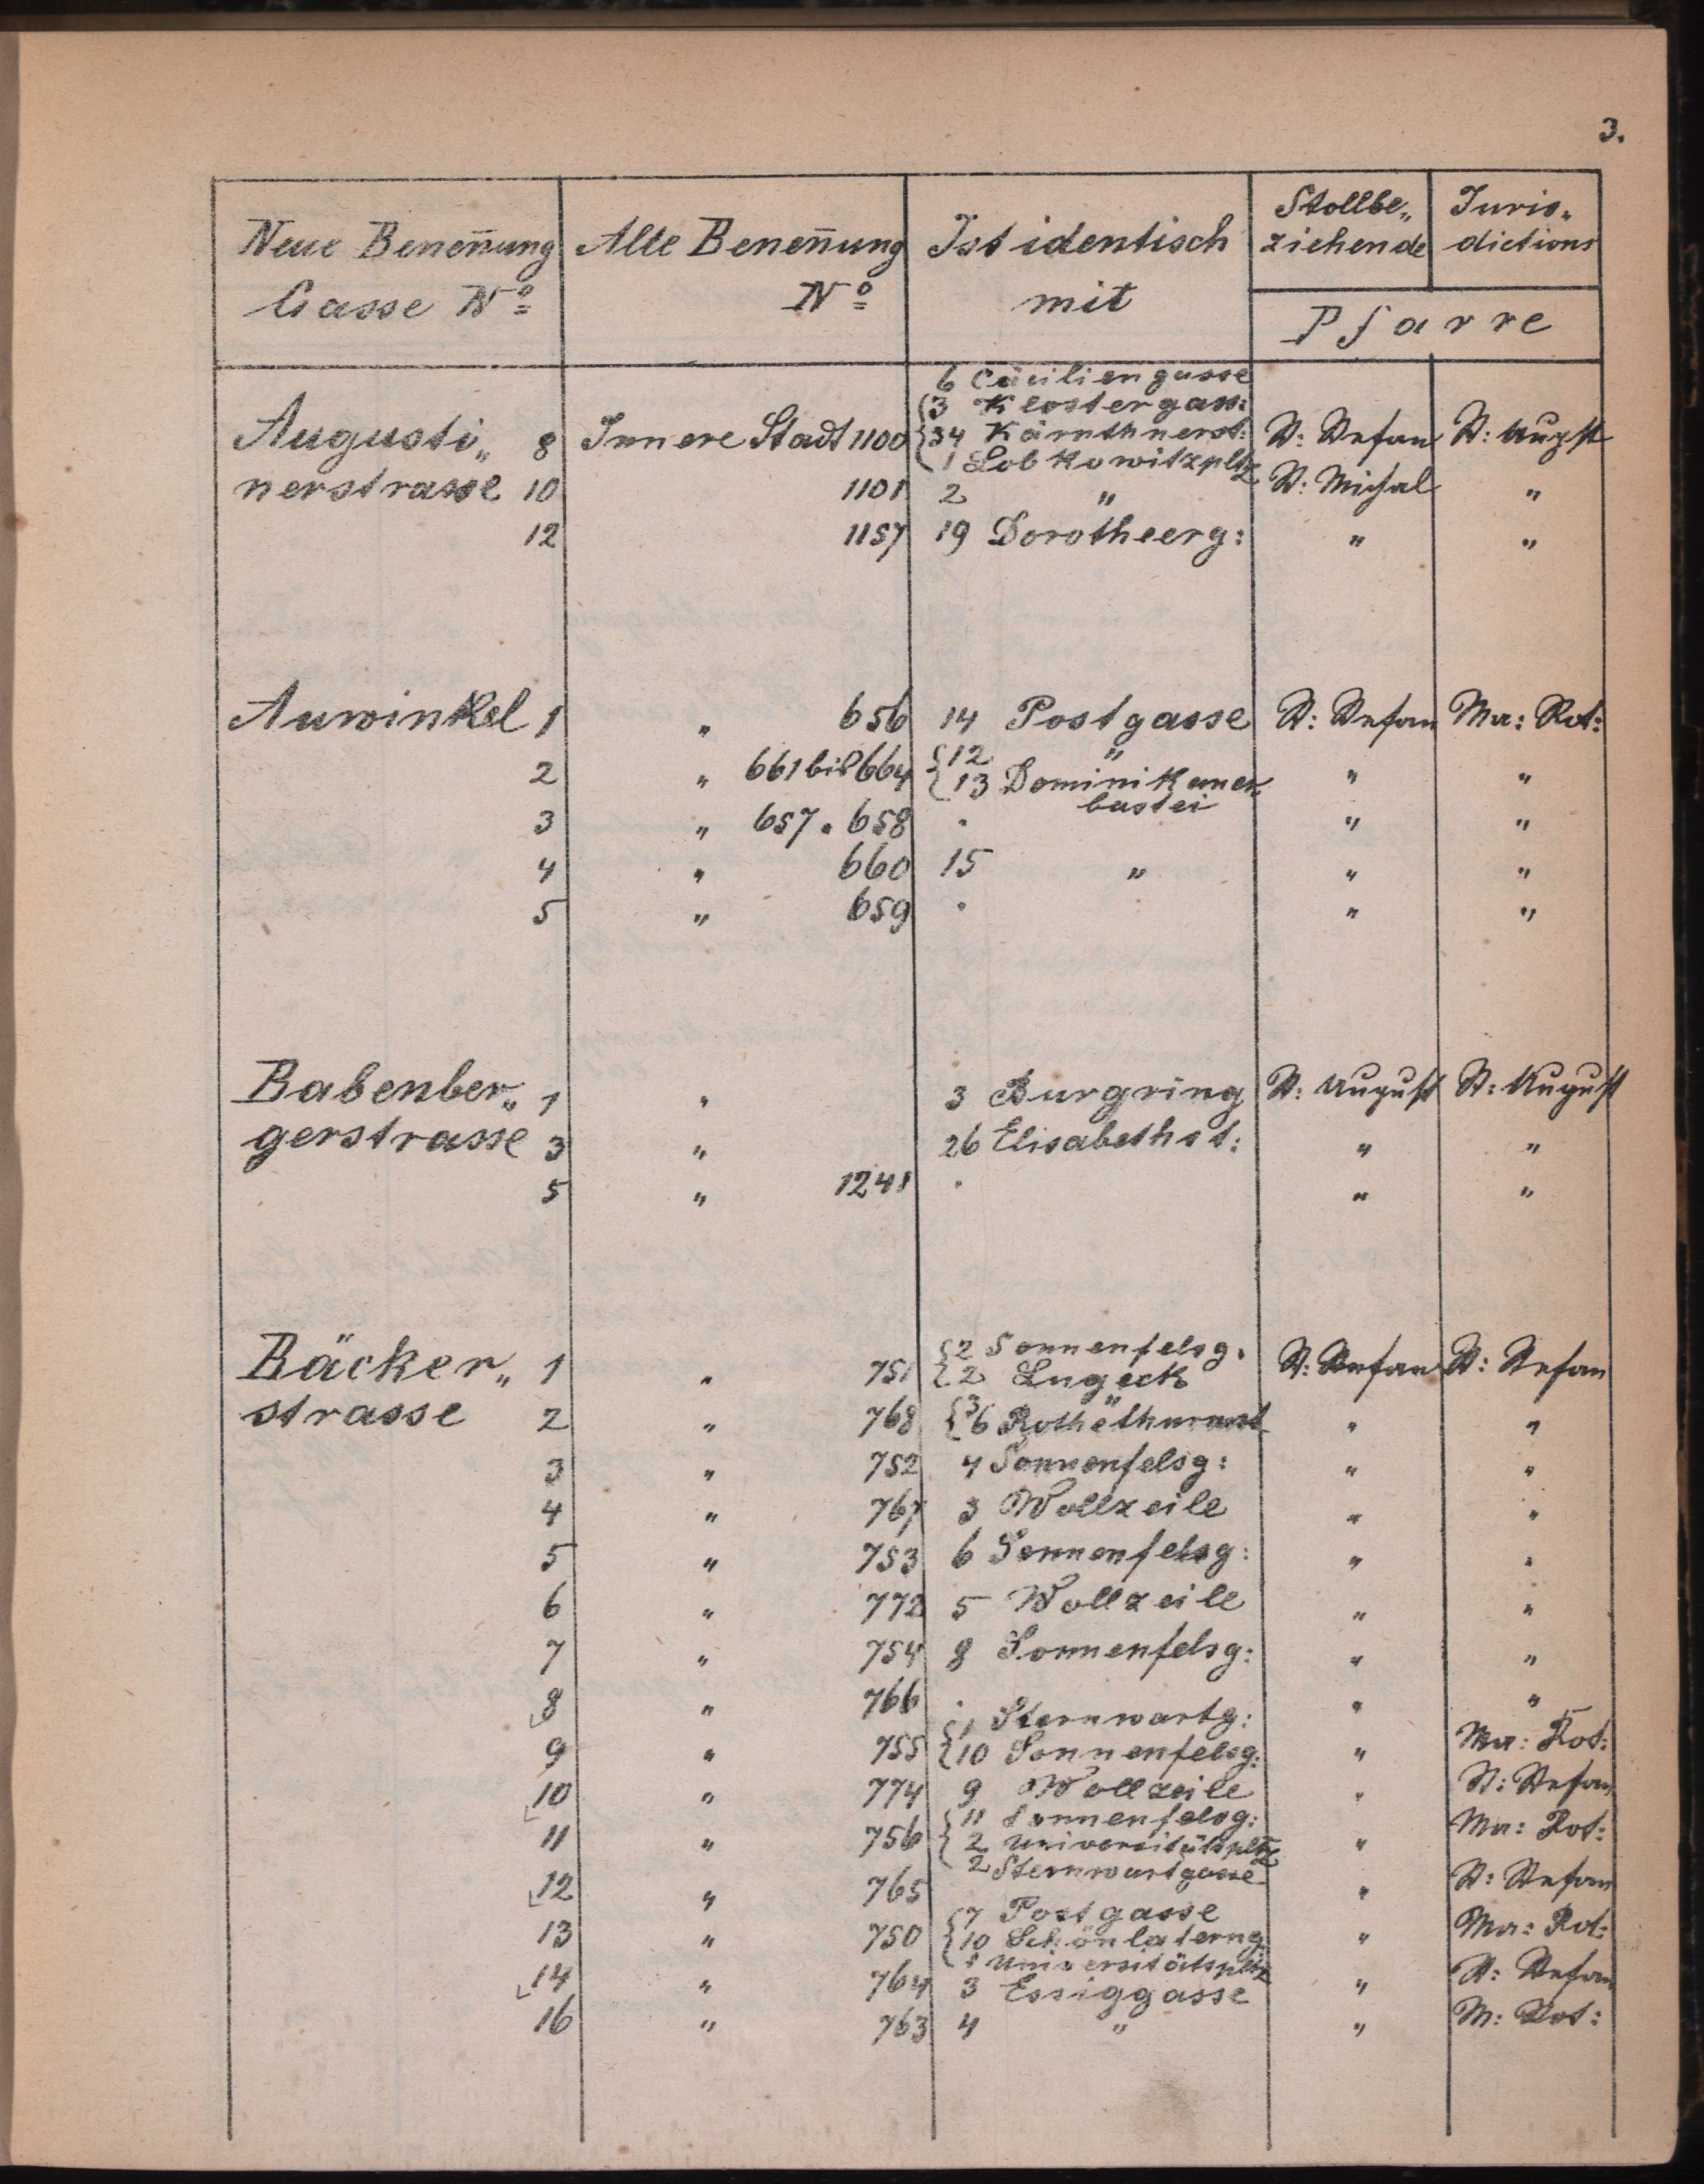 3.
Neue Benen̄ung Gasse No | Alte Benen̄ung No | Ist identisch mit | Stollbe„ ziehende | Juris„ dictions
Pfarre
6 Cäciliengasse
3 Klostergass:
Augusti„ 8 Innere Stadt 1100 34 Kärnthnerst: St: Stefan St: August
1 Lobkowitzpltz
nerstrasse 10 1101 2 " St: Michael "
12 1157 19 Dorotheerg: " "
Auwinkel 1 " 656 14 Postgasse St: Stefan Ma: Rot:
2 " 661 bis 664 { 12 " " "
13 Dominikaner„
bastei
3 " 657. 658 . " "
4 " 660 15 " " "
5 " 659 . " "
Babenber„ 1 " 3 Burgring St: August St: August
gerstrasse 3 " 26 Elisabethst: " "
5 " 1241 . " "
{ 2 Sonnenfelsg.
Bäcker„ 1 " 751 2 Lugeck St: Stefan St: Stefan
3 "
strasse 2 " 768 { 6 Rothethurmst " "
3 " 752 4 Sonnenfelsg: " "
4 " 767 3 Wollzeile " "
5 " 753 6 Sonnenfelsg: " "
6 " 772 5 Wollzeile " "
7 " 754 8 Sonnenfelsg: " "
8 " 766 . " "
{ 1 Sternwartg:
9 " 755 10 Sonnenfelsg: " Ma: Rot:
10 " 774 9 Wollzeile " St: Stefan
{ 11 Sonnenfelsg:
11 " 756 2 Universitätspltz " Ma: Rot:
2 Sternwartgasse
12 " 765 " St: Stefan
{ 7 Postgasse
13 " 750 10 Schönlaterng " Ma: Rot:
1 Universitätspltz
14 " 764 3 Essiggasse " St: Stefan
16 " 763 4 " " M: Rot: